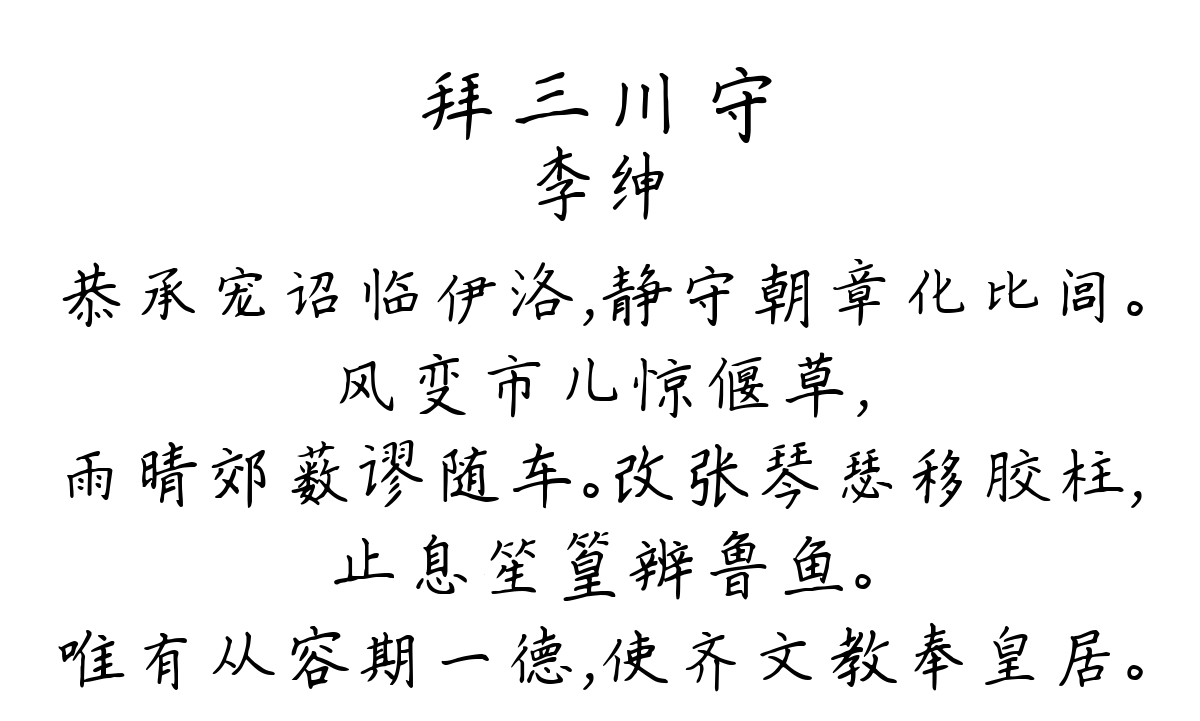 拜三川守
李绅
恭承宠诏临伊洛,静守朝章化比闾。
风变市儿惊偃草,
雨晴郊薮谬随车。改张琴瑟移胶柱,
止息笙篁辨鲁鱼。
唯有从容期一德,使齐文教奉皇居。